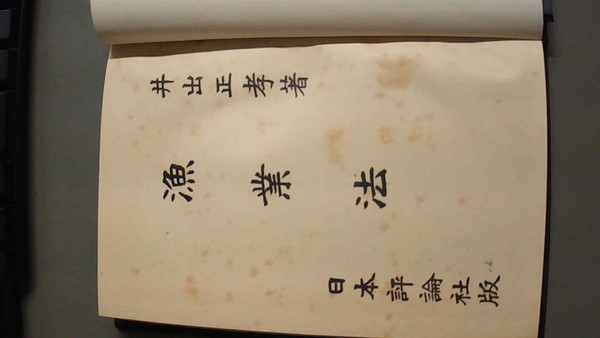 井出正孝著
漁業法
日本評論社版